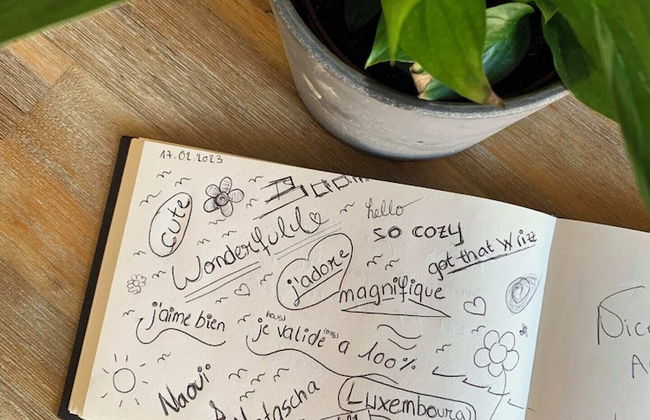 17.02.2023
cute
Wonderfull
hello
so cozy
got that Wizz
j'adore
magnifique
j'aime bien
je valide à 100%
Naoui
Natascha
Luxembourg